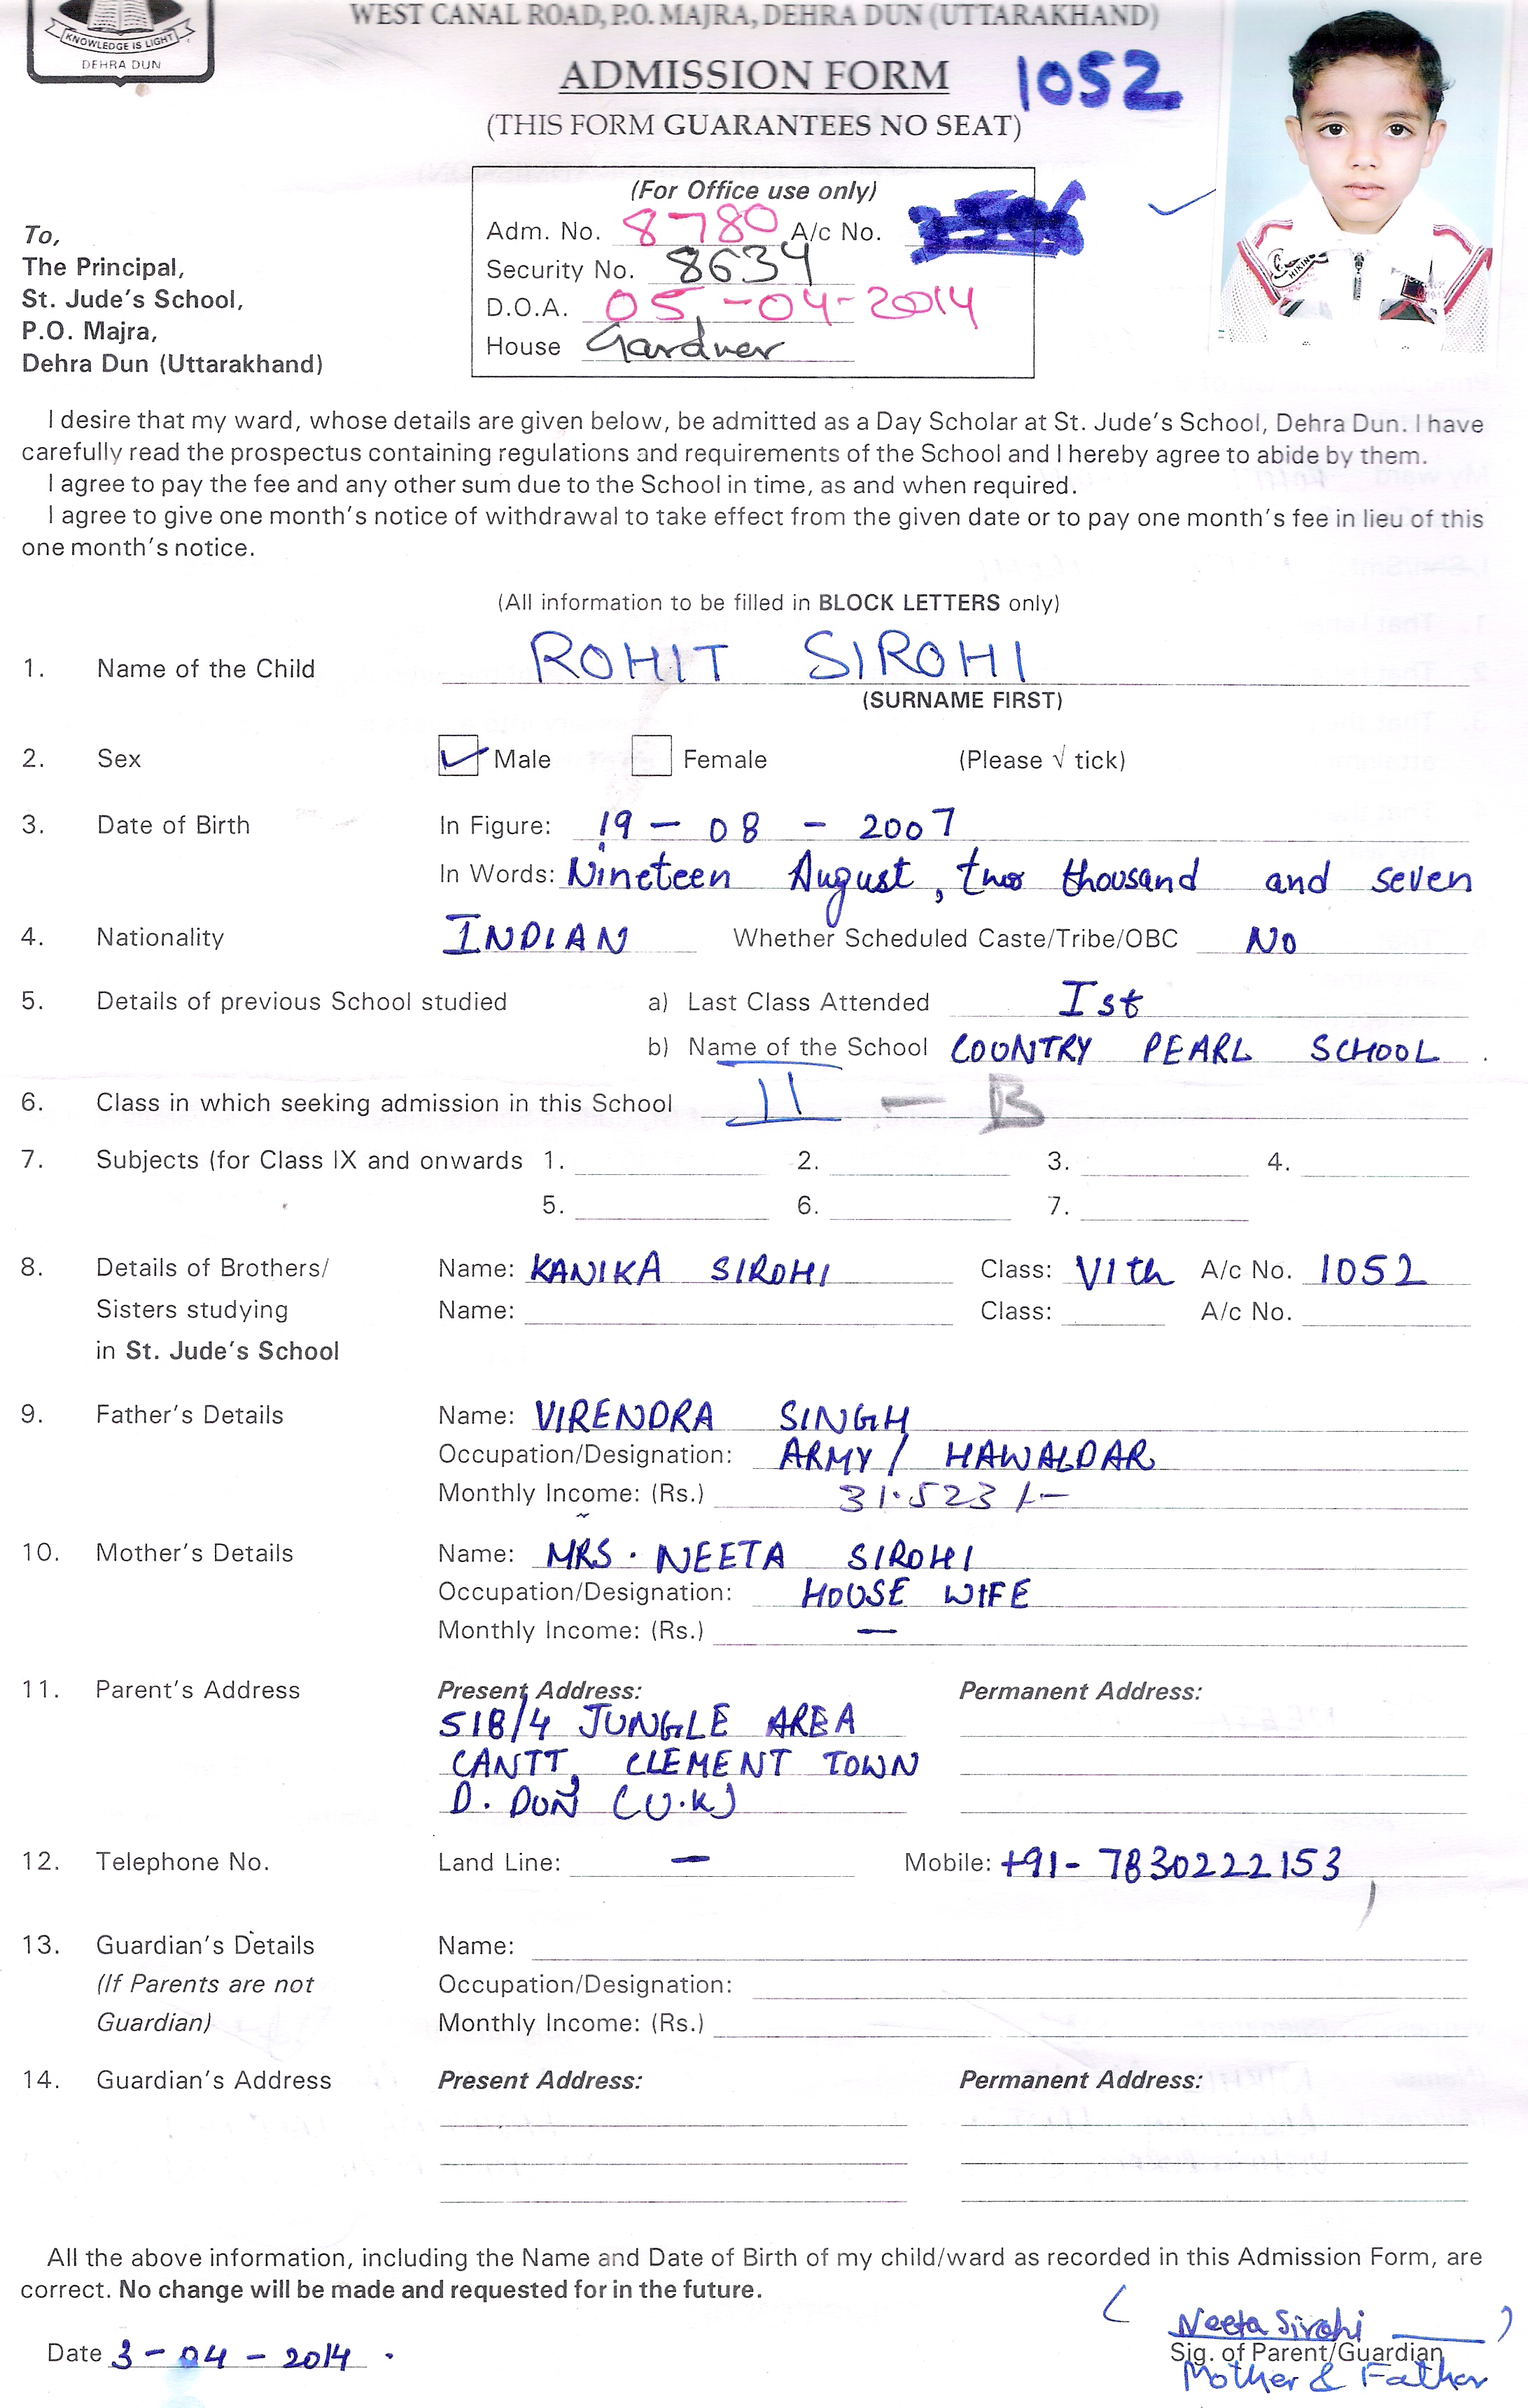 KNOWLEDGE IS LIGHT
DEHRA DUN
WEST CANAL ROAD, P.O. MAJRA, DEHRA DUN (UTTARAKHAND)
ADMISSION FORM 1052
(THIS FORM GUARANTEES NO SEAT)
(For Office use only)
Adm. No. 8780 A/c No.
Security No. 8634
D.O.A. 05-04-2014
House Gardner
To,
The Principal,
St. Jude's School,
P.O. Majra,
Dehra Dun (Uttarakhand)
HIKING
I desire that my ward, whose details are given below, be admitted as a Day Scholar at St. Jude's School, Dehra Dun. I have
carefully read the prospectus containing regulations and requirements of the School and I hereby agree to abide by them.
I agree to pay the fee and any other sum due to the School in time, as and when required.
I agree to give one month's notice of withdrawal to take effect from the given date or to pay one month's fee in lieu of this
one month's notice.
(All information to be filled in BLOCK LETTERS only)
1. Name of the Child ROHIT SIROHI
(SURNAME FIRST)
2. Sex Male Female (Please √ tick)
3. Date of Birth In Figure: 19 - 08 - 2007
In Words: Nineteen August, two thousand and seven
4. Nationality INDIAN Whether Scheduled Caste/Tribe/OBC NO
5. Details of previous School studied a) Last Class Attended Ist
b) Name of the School COUNTRY PEARL SCHOOL .
6. Class in which seeking admission in this School II - B
7. Subjects (for Class IX and onwards 1. 2. 3. 4.
5. 6. 7.
8. Details of Brothers/ Name: KANIKA SIROHI Class: VIth A/c No. 1052
Sisters studying Name: Class: A/c No.
in St. Jude's School
9. Father's Details Name: VIRENDRA SINGH
Occupation/Designation: ARMY / HAWALDAR
Monthly Income: (Rs.) 31.523/-
10. Mother's Details Name: MRS. NEETA SIROHI
Occupation/Designation: HOUSE WIFE
Monthly Income: (Rs.) —
11. Parent's Address Present Address: Permanent Address:
518/4 JUNGLE AREA
CANTT, CLEMENT TOWN
D. DUN (U.K)
12. Telephone No. Land Line: — Mobile: +91- 7830222153
13. Guardian's Details Name:
(If Parents are not Occupation/Designation:
Guardian) Monthly Income: (Rs.)
14. Guardian's Address Present Address: Permanent Address:
All the above information, including the Name and Date of Birth of my child/ward as recorded in this Admission Form, are
correct. No change will be made and requested for in the future.
(Neeta Sirohi )
Date 3 - 04 - 2014 . Sig. of Parent/Guardian
Mother & Father